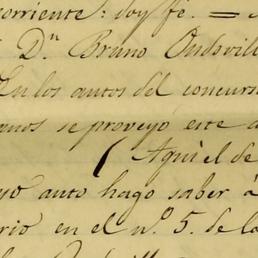 corriente: doy fé. =
Dn Bruno
En los autos del concurs
se proveyo este a
(Aqui el de
yo auto hago saber á
rio en el n.º 5. de la